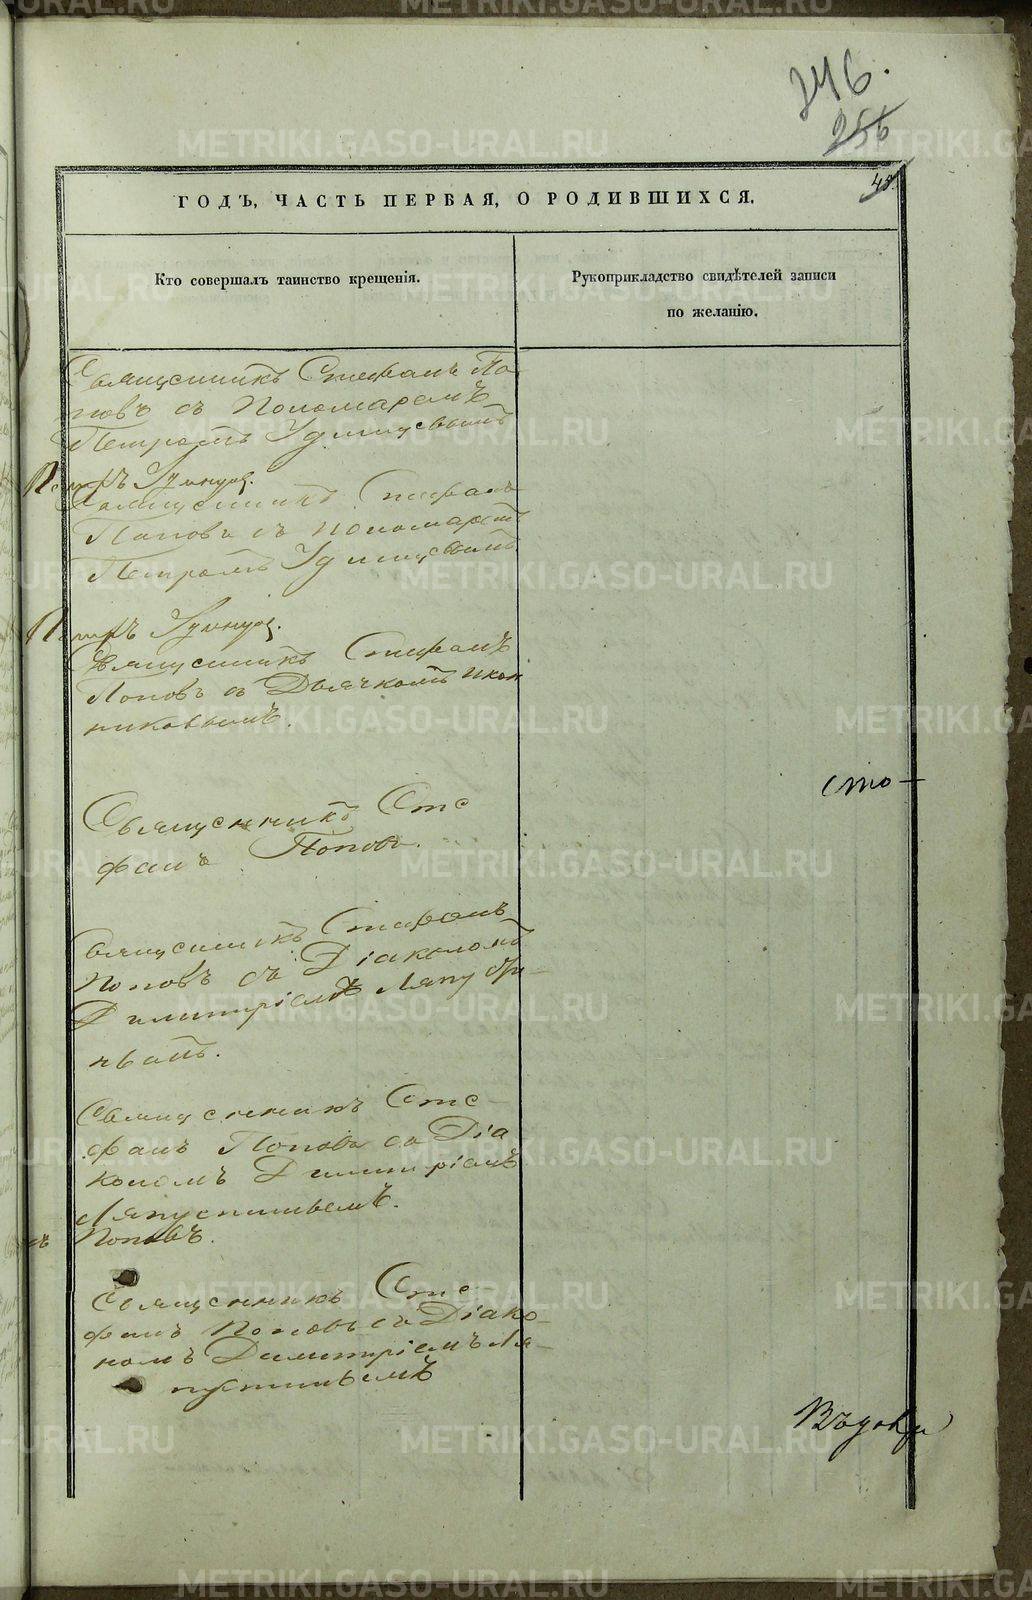 246.
256
48.
ГОДЪ, ЧАСТЬ ПЕРВАЯ, О РОДИВШИХСЯ.
Кто совершалъ таинство крещенія.
Рукоприкладство свидѣтелей записи
по желанію.
Священникъ Стефанъ По-
повъ съ Пономаремъ
Петромъ Удинцевымъ
Петръ Удинцов.
Священникъ Стефанъ
Поповъ съ Пономаремъ
Петромъ Удинцевымъ
Петръ Удинцов.
Священникъ Стефанъ
Поповъ съ Дьячкомъ Икон
никовымъ.
Священникъ Сте
фанъ Поповъ.
Священникъ Стефанъ
Поповъ съ Діакономъ
Димитріемъ Ляпусти-
нымъ.
Священникъ Сте-
фанъ Поповъ съ Діа
кономъ Димитріемъ
Ляпустинымъ.
съ Поповъ.
Священникъ Сте
фанъ Поповъ съ Діако-
номъ Димитріемъ Ля-
пустинымъ
сто-
METRIKI.GASO-URAL.RU